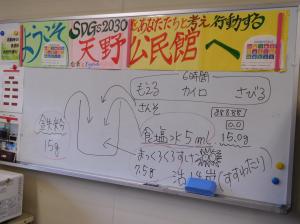 ようこそ SDGs2030 をあなたたちと考え行動する
天野公民館へ
6時間
もえる カイロ さびる
さんそ
8888
0.0
食塩水5mL 15.0g
鉄粉
15g
まっくろくろすけ
7.5g 活性炭 (すすわたり)